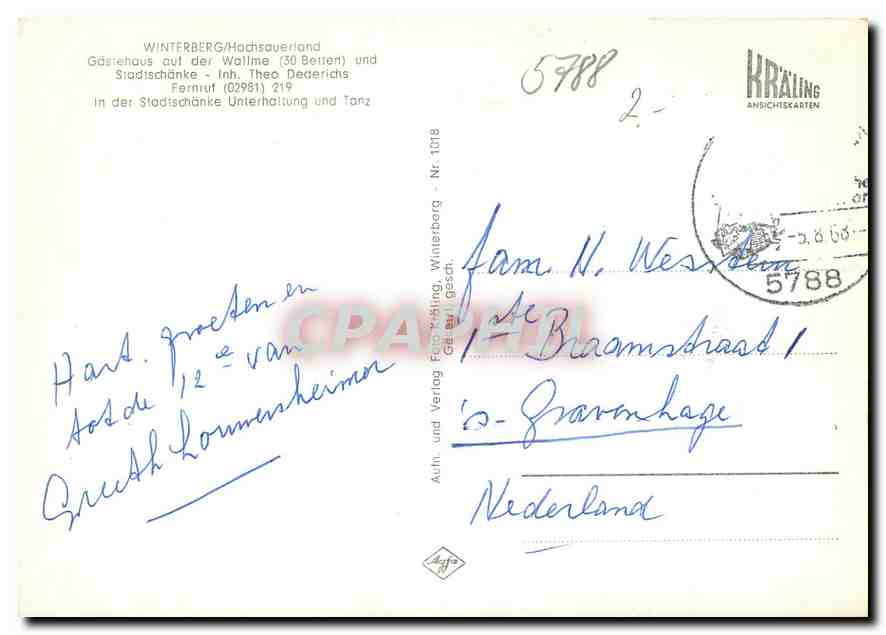 WINTERBERG/Hochsauerland
Gästehaus auf der Wallme (30 Betten) und
Stadtschänke - Inh. Theo Dederichs
Fernruf (02981) 219
In der Stadtschänke Unterhaltung und Tanz
5788
2.-
KRÄLING
ANSICHTSKARTEN
-5.8.68
5788
Hart. groeten en
tot de 12e van
Louwersheimer
Aufn. und Verlag Foto Kräling, Winterberg - Nr. 1018
Gesetzl. gesch.
fam. N. Wesstein
1ste Braamstraat 1
's-Gravenhage
Nederland
Agfa
CPAPHIL